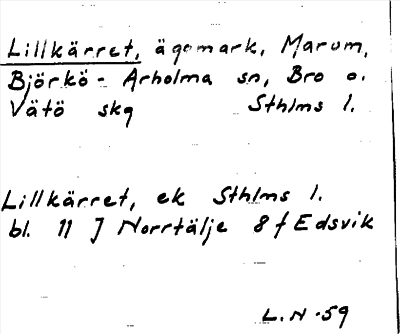 Lillkärret, ägomark, Marum,
Björkö - Arholma sn, Bro o.
Vätö skg Sthlms l.
Lillkärret, ek Sthlms l.
bl. 11 J Norrtälje 8 f Edsvik
L. N -59